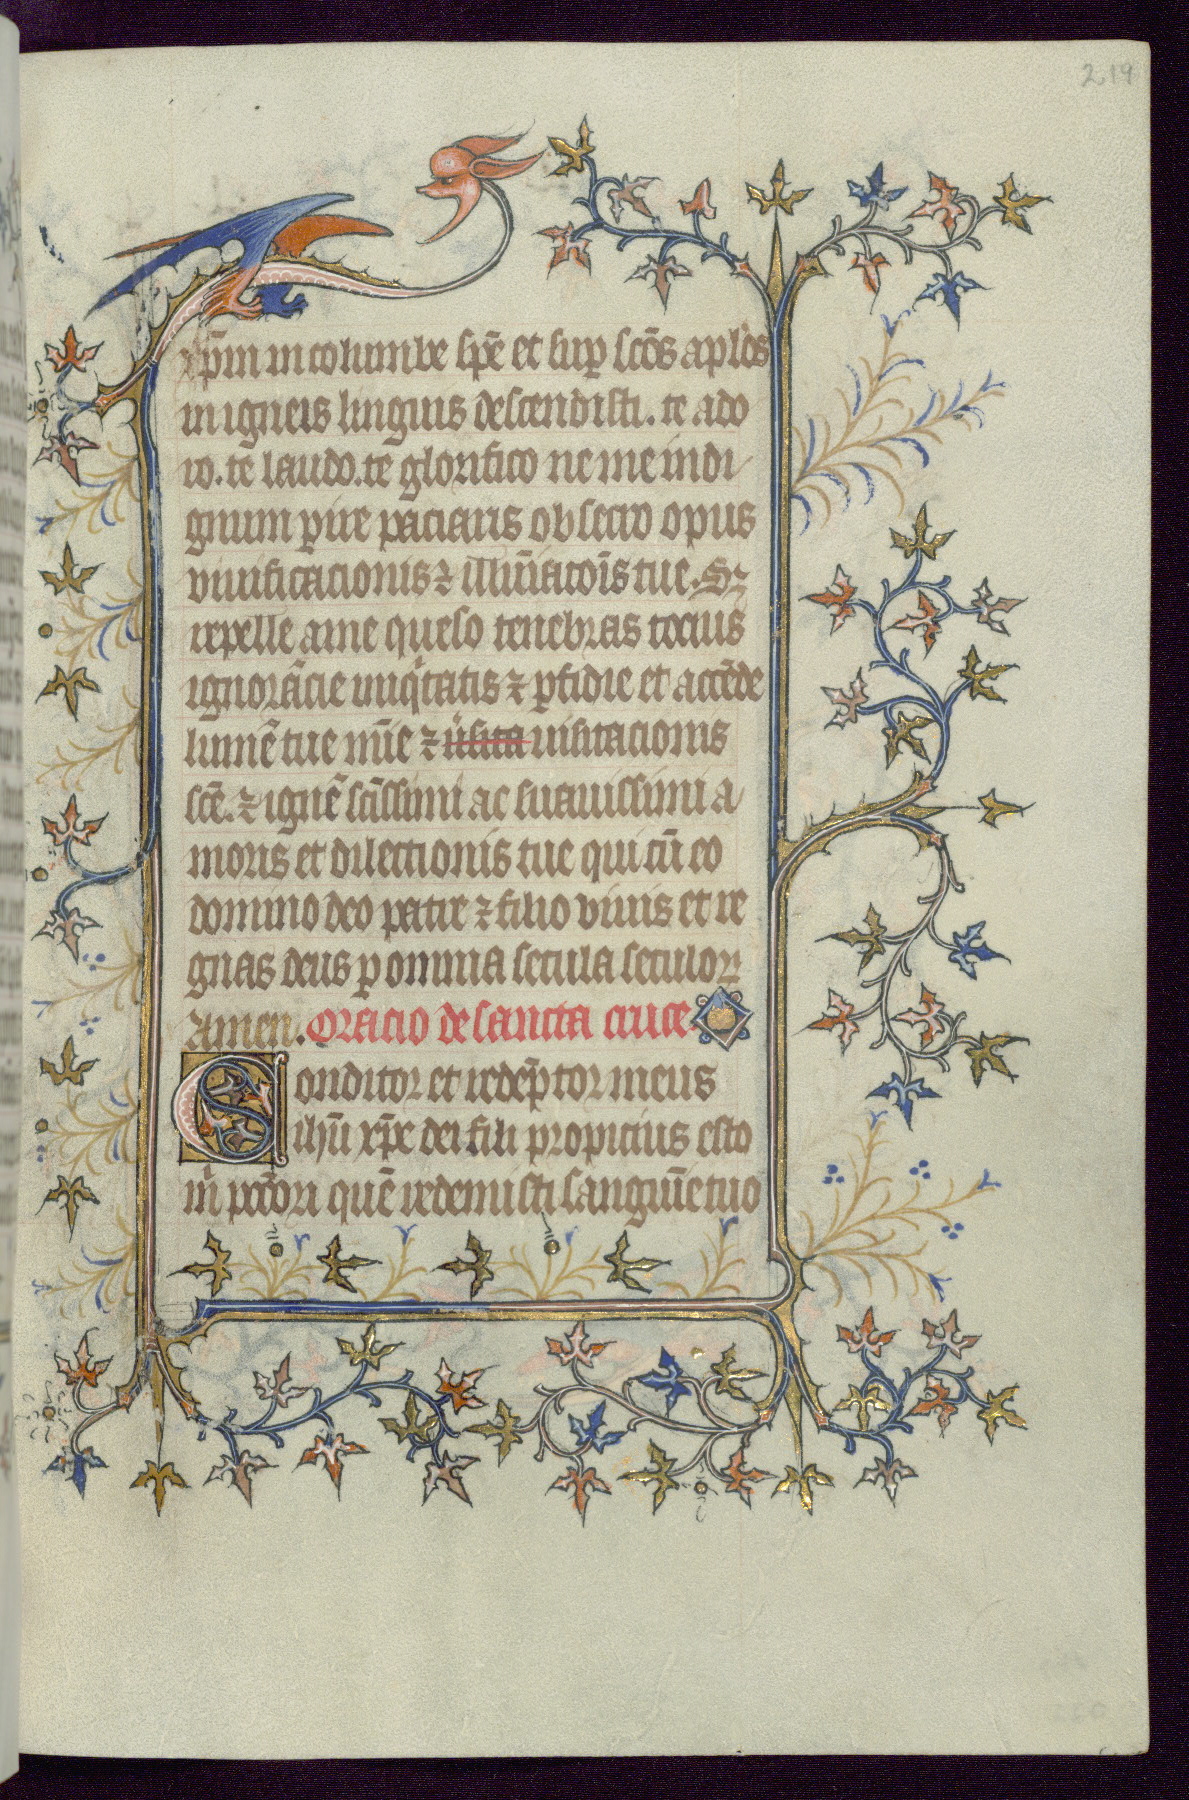 219
xp̄m in columbe spē et sup̱ sc̄os apl̄os
in igneis linguis descendisti. te ado
ro. te laudo. te glorifico ne me indi
gnum ꝑire paciaris obsecro opus
viuificacionis ⁊ illūīacōīs tue. S⁊
repelle a me queso tenebras tocius
ignorācie iniqͥtatis ⁊ ꝑfidie et accēde
lumē tue mīe ⁊ uisita uisitacionis
scē. ⁊ ignē sc̄issimi ac suauissimi a
moris et dilectionis tue qui cū eo
domino deo patre ⁊ filio viuis et re
gnas deus ꝑ omnia secula seculoꝝ
amen. Oracio de sancta cruce.
Conditor et redēptor meus
ihū xp̄e dei fili propicius esto
mͥ pctōri quē redemisti sanguīe tuo